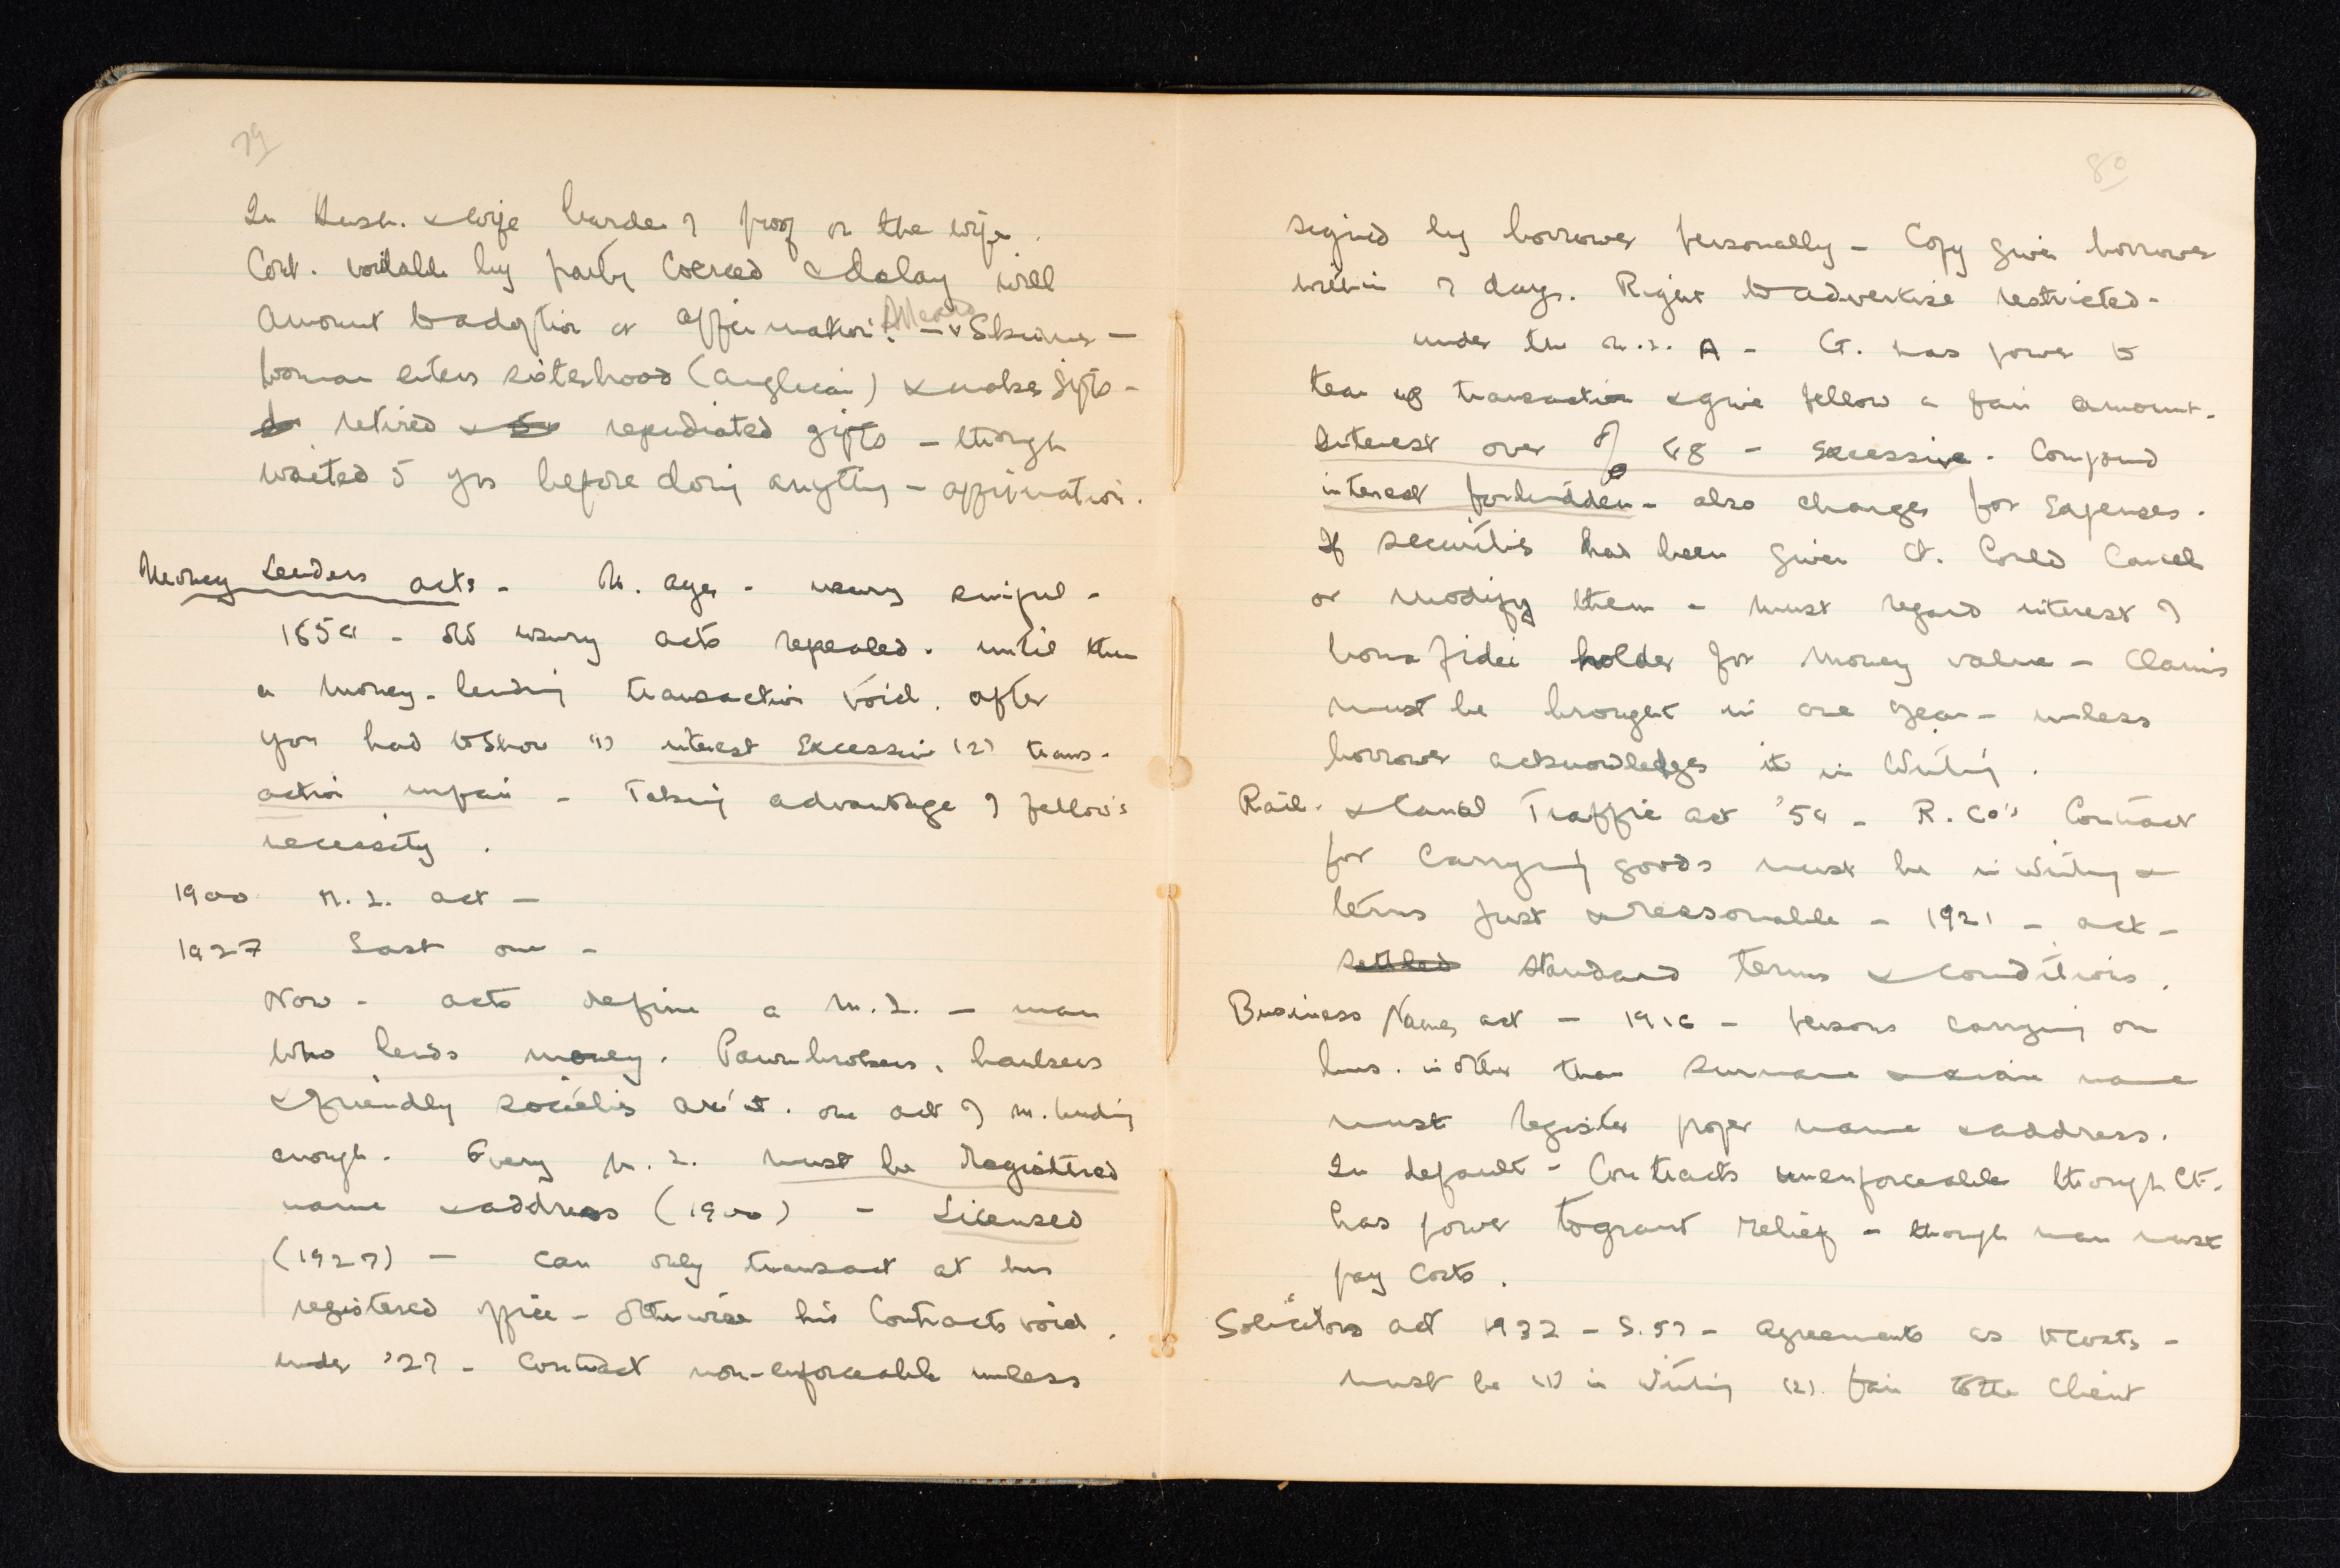 79
In Hush. & wife burden of proof on the wife.
Cont. voidable by party coerced & delay will
amount to adoption or affirmation. Allcard – v Skinner –
woman enters sisterhood (anglican) & makes gifts –
retired & repudiated gifts – though
waited 5 yrs before doing anything – affirmation.
Money Lenders acts – M. ages – usury sinful –
1854 – old usury acts repealed. until then
a money-lending transaction void. after
you had to show (1) interest excessive (2) trans-
action unfair – Taking advantage of fellow's
necessity.
1900 M. L. act –
1927 Last one –
Now – acts define a M.L. – man
who lends money. Pawnbrokers, bankers
& friendly societies are'nt. one act of m. lending
enough. Every M. L. must be Registered
name & address (1900) – Licensed
(1927) – can only transact at his
registered office – otherwise his Contracts void.
under '27 – contract non-enforceable unless
80
signed by borrower personally – Copy given borrower
within 7 days. Right to advertise restricted –
under the M.L. A – Ct. has power to
tear up transaction & give fellow a fair amount.
Interest over % 48 – Excessive. Compound
interest forbidden – also charges for Expenses.
If securities had been given Ct. Could Cancel
or modify them – must regard interest of
bona fidei holder for money value – Claims
must be brought in one year – unless
borrower acknowledges it in Writing.
Rail. & Canal Traffic act '54 – R. Co's Contract
for Carrying goods must be in Writing &
terms just & reasonable – 1921 – act –
settled standard terms & conditions.
Business Names act – 1916 – persons carrying on
bus. in other than surname & xian name
must register proper name & address.
In default – Contracts unenforceable though Ct.
has power to grant relief – though man must
pay Costs.
Solicitors act 1932 – S. 57 – agreements as to costs –
must be (1) in Writing (2) fair to the Client